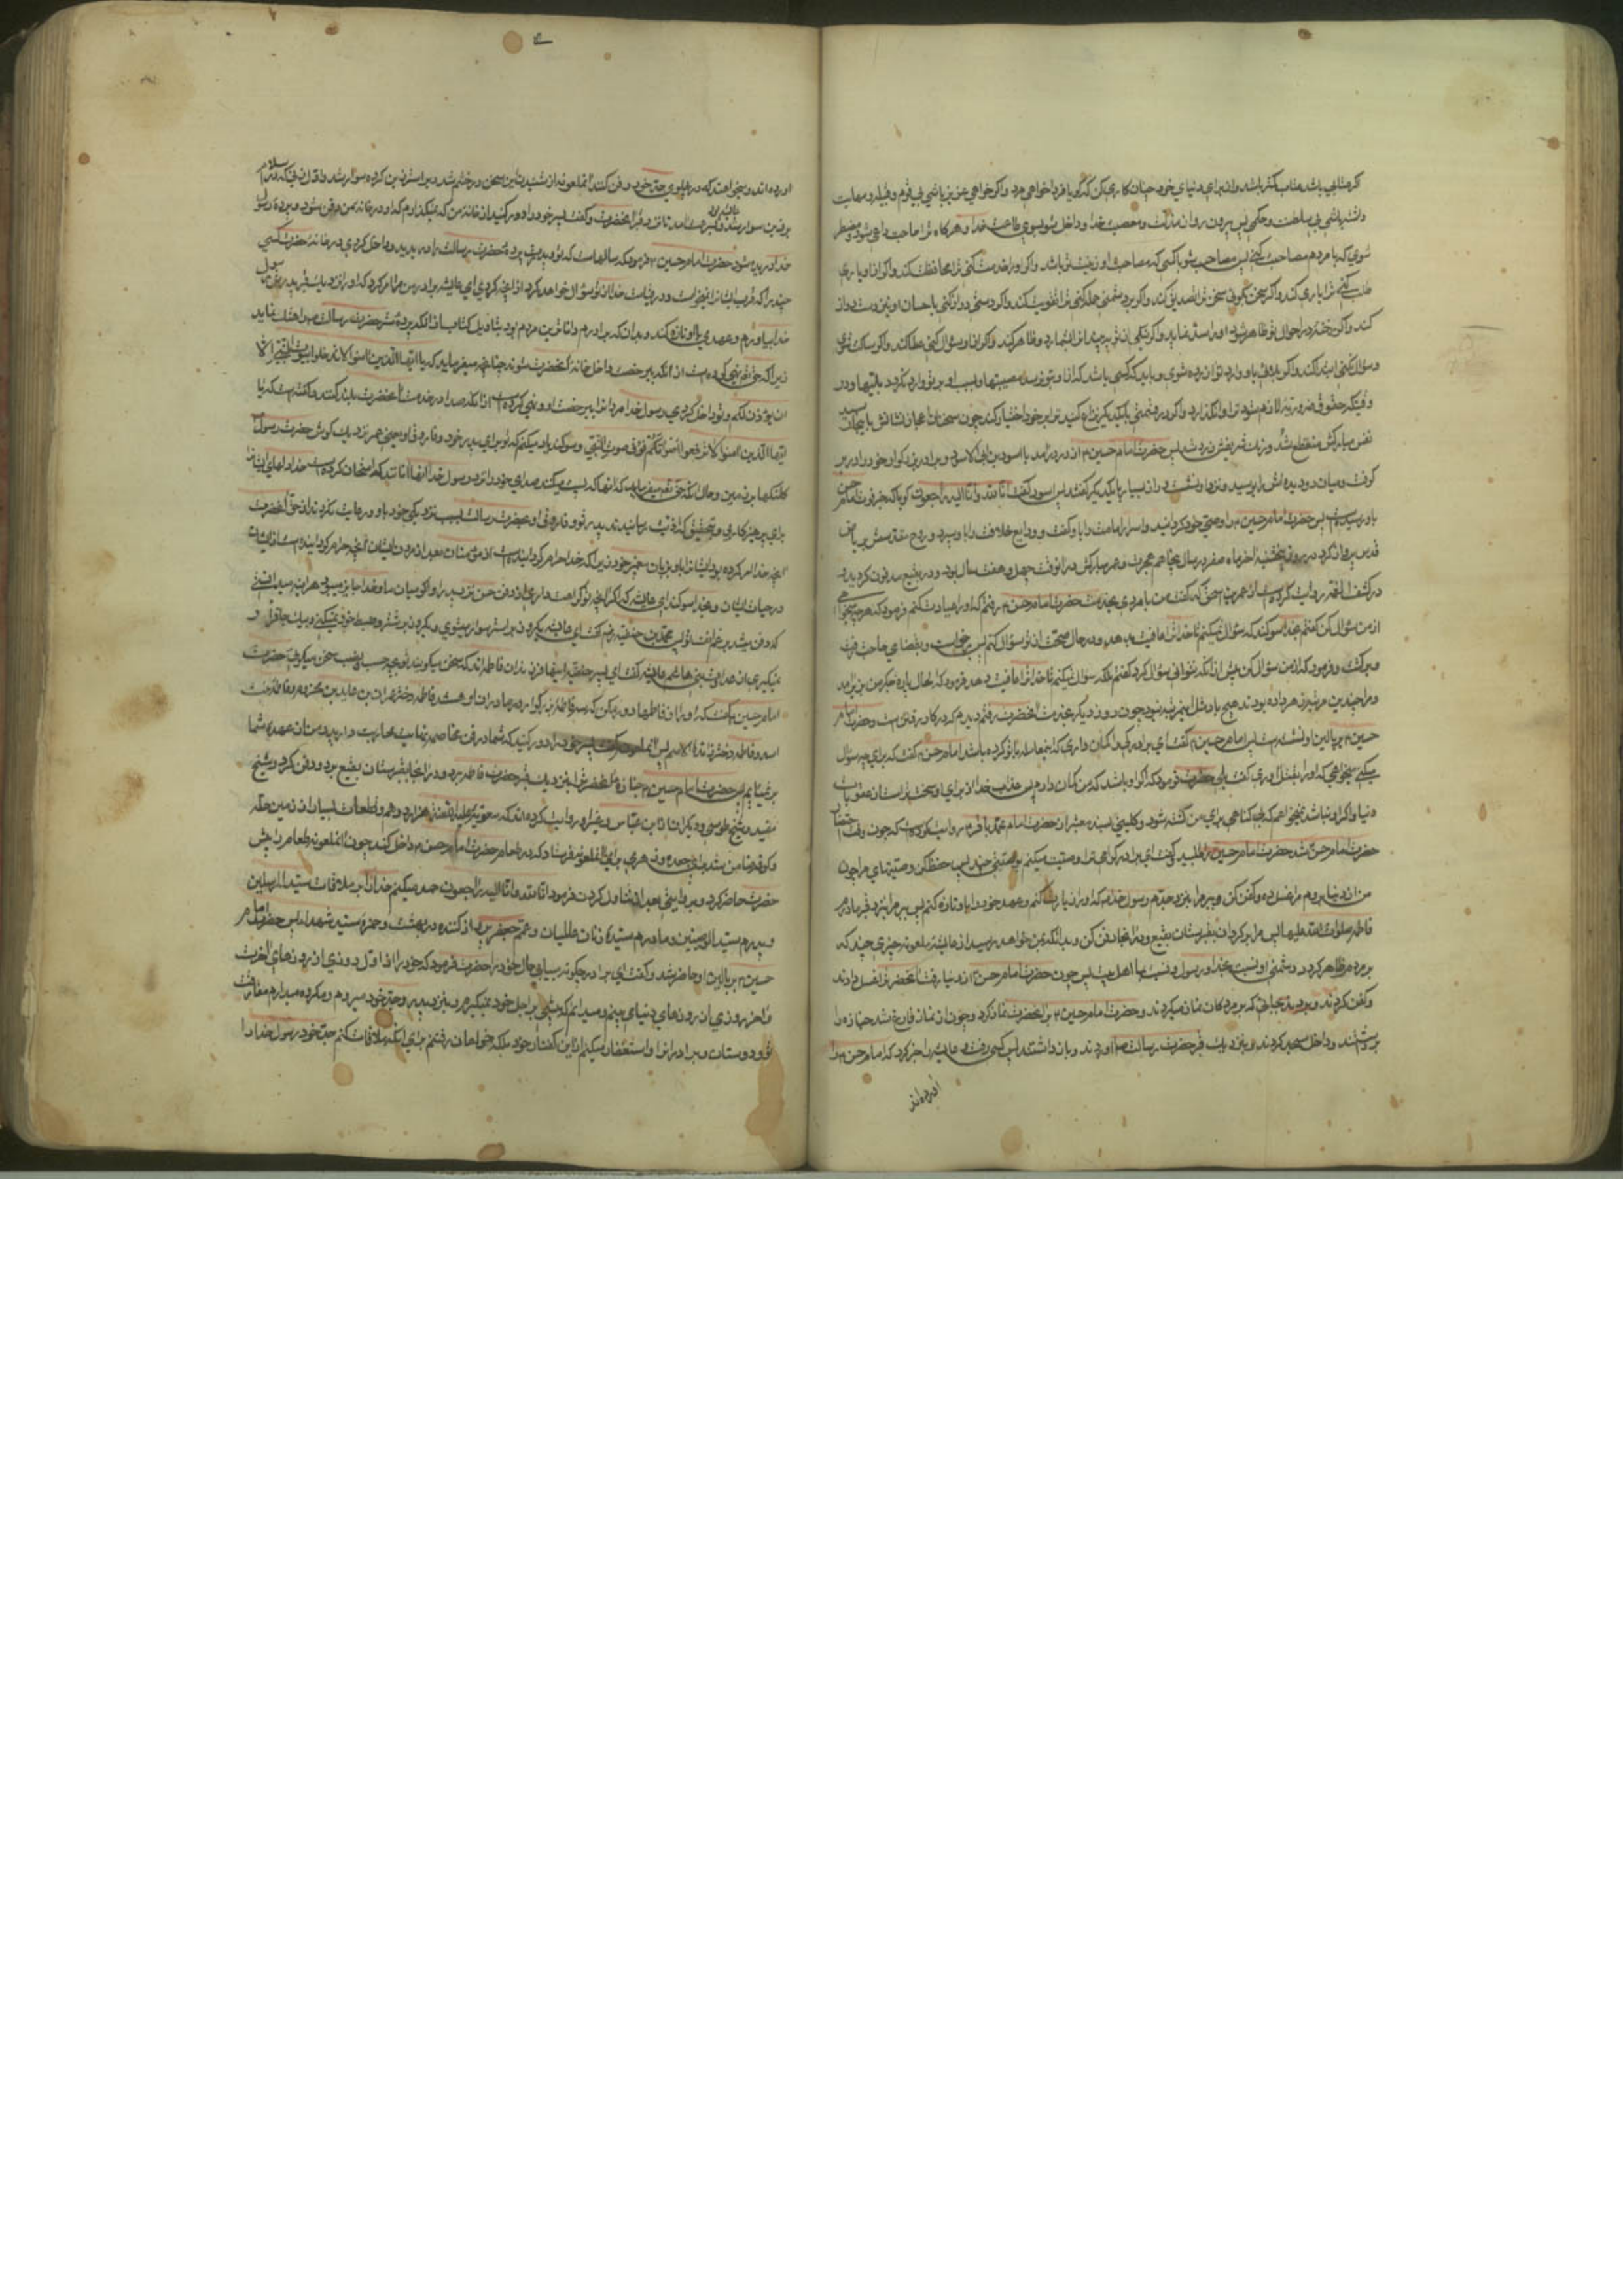 که عتابی باشد عتاب کمتر باشد و از برای دنیای خود چنان کار بکن که گویا فردا خواهی مرد و اگر خواهی عزیز باشی بی قوم و قبیله و مهابت
داشته باشی بی سلطنت و حکمی پس بیرون رو از مذلت معصیت خدا و داخل شو بسوی طاعت خدا و هرگاه ترا حاجت داعی شود و مضطر
شوی که با مردم مصاحبت کنی پس مصاحب شو با کسی که مصاحبت او زینت تو باشد و اگر او را خدمت کنی ترا محافظت کند و اگر از او یاری
طلب کنی ترا یاری کند و اگر سخن بگوئی سخن ترا تصدیق کند و اگر بر دشمنی حمله کنی ترا تقویت کند و اگر دستی دراز کنی باحسان او نیز دست دراز
کند و اگر رخنه در احوال تو ظاهر شود او را سد نماید و اگر نیکی از تو به بیند آنرا بشمارد و ظاهر کند و اگر از او سؤال کنی عطا کند و اگر ساکت شوی
و سؤال نکنی ابتدا کند و اگر بلائی باو وارد شود تو آزرده شوی و باید که کسی باشد که از او بتو نرسد مصیبتها و بسبب او بر تو وارد نگردد بلیتها و در
نفس مبارکش منقطع شد و رنگ شریفش زرد شد پس حضرت امام حسین ۴ از در درآمد با اسود بن ابی الاسود و برادر بزرگوار خود را در بر
گرفت و میان دو دیده‌اش را بوسید و نزد او نشست و راز بسیار با یکدیگر گفتند پس اسود گفت انا لله و انا الیه راجعون گویا که خبر فوت امام حسن
باو رسیده است پس حضرت امام حسین ۴ را وصی خود گردانید و اسرار امامت را باو گفت و ودایع خلافت را باو سپرد و روح مقدسش بریاض
قدس پرواز کرد در روز پنجشنبه آخر ماه صفر در سال پنجاهم هجرت و عمر مبارکش در آنوقت چهل و هفت سال بود و در بقیع مدفون گردید
در کشف الغمه روایت کرده است از عمر بن اسحق که گفت من با مردی بخدمت حضرت امام حسن ۴ رفتم که او را عیادت کنم فرمود که هرچه میخواهی
از من سؤال کن گفتم بخدا سوگند که سؤال نمیکنم تا خدا ترا عافیت بدهد و در حال صحت از تو سؤال کنم پس برخواست و بقضای حاجت رفت
و برگشت و فرمود که از من سؤال کن پیش از آنکه نتوانی سؤال کرد گفتم بلکه سؤال نمیکنم تا خدا ترا عافیت دهد فرمود که الحال پاره جگر من بزیر آمد
و مرا چندین مرتبه زهر داده بودند هیچ بار مثل این مرتبه نبود چون روز دیگر بخدمت آنحضرت رفتم دیدم که در کار رفتن است و حضرت امام
حسین ۴ بر بالین او نشسته است پس امام حسین ۴ گفت ای برادر کی را گمان داری که این معامله با تو کرده باشد امام حسن ۴ گفت که برای چه سؤال
میکنی میخواهی که او را بقتل آوری گفت بلی حضرت فرمود که اگر او باشد که من گمان دارم پس عذاب خدا از برای او سخت‌تر است از عقوبات
دنیا و اگر او نباشد نمیخواهم که بی گناهی برای من کشته شود و کلینی بسند معتبر از حضرت امام محمد باقر ۴ روایت کرده است که چون وقت احتضار
حضرت امام حسن شد حضرت امام حسین را طلبید و گفت ای برادر گرامی ترا وصیت میکنم بوصیتی چند پس حفظ کن وصیتهای مرا چون
من از دنیا بروم مرا غسل ده و کفن کن و ببر مرا بنزد جدم رسول خدا ص که او را زیارت کنم و عهد خود را باو تازه کنم پس ببر مرا بنزد قبر مادرم
فاطمه صلوات الله علیها پس مرا برگردان بقبرستان بقیع و در آنجا دفن کن و بدانکه بمن خواهد رسید از عایشه ملعونه چیزی چند که
بر مردم ظاهر گردد دشمنی او نسبت بخدا و رسول و نسبت بما اهل بیت پس چون حضرت امام حسن ۴ از دنیا رفت آنحضرت را غسل دادند
و کفن کردند و بردند بجائی که بر مردگان نماز میکردند و حضرت امام حسین ۴ بر آنحضرت نماز کرد و چون از نماز فارغ شد جنازه را
برداشتند و داخل مسجد کردند و بنزدیک قبر حضرت رسالت ص آوردند و باز داشتند پس کسی رفت و عایشه را خبر کرد که امام حسن ۴ را
آورده‌اند
آورده‌اند و میخواهند که در پهلوی جد خود دفن کنند آن ملعونه از شنیدن این سخن در خشم شد و بر استر زین کرده سوار شد و اول زنی که در اسلام
بر زین سوار شد
خدا دریده شود حضرت امام حسین ۴ فرمود که سالهاست که تو و پدرت پرده حضرت رسالت را دریدید و داخل کردی در خانه حضرت کسی
چند را که قرب ایشان را نمیخواست و در قیامت خدا از تو سؤال خواهد کرد از آنچه کردی ای عایشه برادر من مرا امر کرد که او را نزدیک قبر پدرش رسول
خدا بیاورم و عهدی با او تازه کند و بدان که برادرم داناترین مردم بود بتاویل کتاب خدا از آنکه پرده ستر حضرت رسالت ص را هتک نماید
زیرا که حق تعالی نهی کرده است از آنکه بی رخصت داخل خانه آنحضرت شوند چنانچه میفرماید که یا ایها الذین آمنوا لا تدخلوا بیوت النبی الا
ان یؤذن لکم و تو داخل کردی در خانه رسول خدا مردان را بی رخصت او و نهی کرده است از آنکه صدا در خدمت آنحضرت بلند کنند و گفته است که یا
ایها الذین آمنوا لا ترفعوا اصواتکم فوق صوت النبی و سوگند یاد میکنم که تو برای پدر خود و فاروق او یعنی عمر نزدیک گوش حضرت رسول
کلنگها بر زمین و حال آنکه حق تعالی میفرماید که آنها که پست میکنند صدای خود را نزد رسول خدا آنها آنانند که امتحان کرده است خدا دلهای ایشان
برای پرهیزکاری و بتحقیق که اذیت رسانیدند پدر تو و فاروق او بحضرت رسالت بسبب نزدیکی خود باو و رعایت نکردند از حق آنحضرت
آنچه خدا امر کرده بود ایشان را باو بر زبان پیغمبر خود زیرا که خدا حرام گردانیده است از مؤمنان بعد از مردن ایشان آنچه حرام گردانیده است از ایشان
در حیات ایشان و بخدا سوگند ای عایشه که اگر آنچه تو کراهت داری از دفن حسن نزد پدرش
که دفن میشد برغم انف تو پس محمد بن حنفیه رض گفت ای عایشه یکروز بر استر سوار میشوی و یکروز بر شتر و ضبط خود نمیکنی
نمیگیری از عداوت بنی هاشم عایشه گفت ای پسر حنفیه اینها فرزندان فاطمه‌اند که سخن میگویند تو بچه حسب و نسب سخن میگوئی حضرت
امام حسین ۴ گفت که او را از فاطمها دور مکن که سه فاطمه بزرگوار در مادران او هست فاطمه دختر عمران بن عاید بن مخزوم و فاطمه بنت
اسد و فاطمه دختر زایدة الاصم پس آن ملعونه گفت پسر خود را دور کنید
برنمیآیم پس حضرت امام حسین ۴ جنازه آنحضرت را بنزدیک قبر حضرت فاطمه برد و در آنجا بقبرستان بقیع برد و دفن کرد و شیخ
مفید و شیخ طوسی و دیگران از ابن عباس و غیر او روایت کرده‌اند که معویه علیه اللعنه ده هزار درهم و قطعات بسیار از زمین حله
و کوفه ضامن شد برای جعده و زهری برای آن ملعونه فرستاد که در طعام حضرت امام حسن ۴ داخل کند چون آن ملعونه طعام را پیش
حضرت حاضر کرد و بروایتی بعد از تناول کردن فرمود انا لله و انا الیه راجعون حمد میکنم خدا را بر ملاقات سید المرسلین
و پدرم سید الوصیین و مادرم سیده زنان عالمیان و عمم جعفر پرواز کننده در بهشت و حمزه سید شهدا پس حضرت امام
حسین ۴ بر بالین او حاضر شد و گفت ای برادر چگونه مییابی حال خود را حضرت فرمود که خود را در اول روزی از روزهای آخرت
و آخر روزی از روزهای دنیا می‌بینم و میدانم که پیشی بر اجل خود نمیگیرم و بنزد پدر و جد خود میروم و مکروه میدارم مفارقت
تو و دوستان و برادران را و استغفار میکنم از این گفتار خود بلکه خواهان رفتنم برای آنکه ملاقات کنم جد خود رسول خدا را